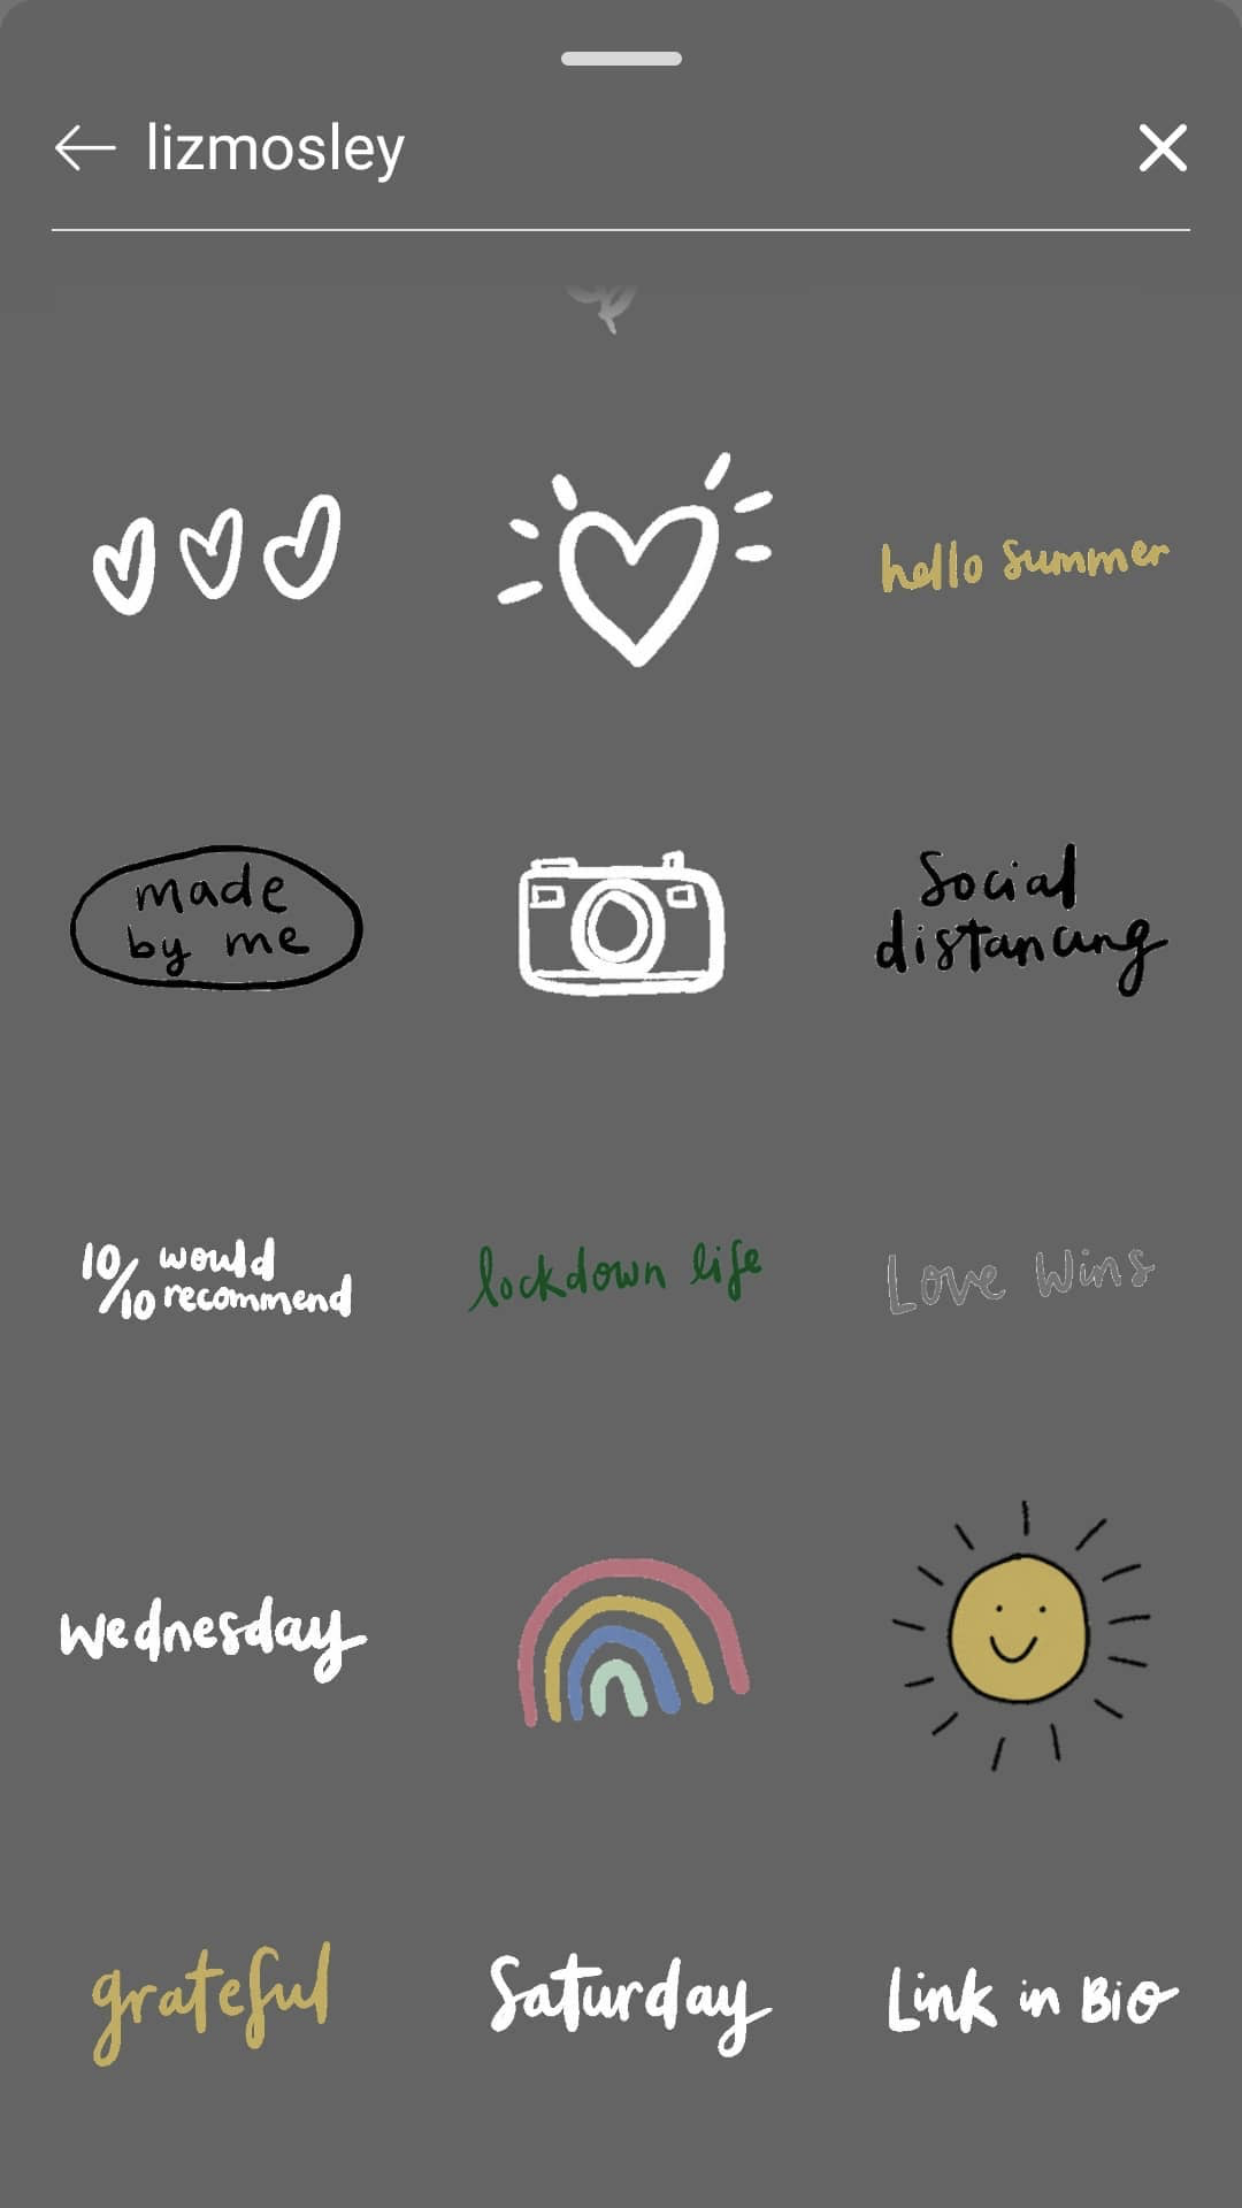 lizmosley
hello summer
made
by me
Social
distancing
10/10 would
recommend
lockdown life
Love Wins
Wednesday
grateful
Saturday
Link in Bio